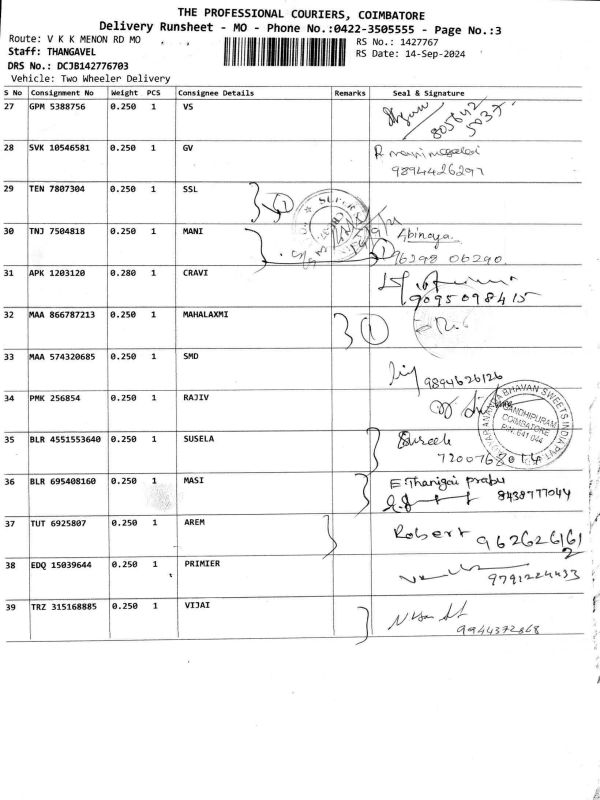 THE PROFESSIONAL COURIERS, COIMBATORE
Delivery Runsheet - MO - Phone No.:0422-3505555 - Page No.:3
Route: V K K MENON RD MO
RS No.: 1427767
Staff: THANGAVEL
RS Date: 14-Sep-2024
DRS No.: DCJB142776703
Vehicle: Two Wheeler Delivery
S No Consignment No Weight PCS Consignee Details Remarks Seal & Signature
27 GPM 5388756 0.250 1 VS
805642
5037
28 SVK 10546581 0.250 1 GV
9894426297
29 TEN 7807304 0.250 1 SSL
1
30 TNJ 7504818 0.250 1 MANI Abinaya
1 76298 06290
31 APK 1203120 0.280 1 CRAVI
9095098415
32 MAA 866787213 0.250 1 MAHALAXMI
1
33 MAA 574320685 0.250 1 SMD
9894626126
34 PMK 256854 0.250 1 RAJIV
BHAVAN SWEETS INDIA PVT
GANDHIPURAM
COIMBATORE
PIN: 641 044
35 BLR 4551553640 0.250 1 SUSELA
36 BLR 695408160 0.250 1 MASI E Thanigai prabu
8438777044
37 TUT 6925807 0.250 1 AREM Robert 962626161
2
38 EDQ 15039644 0.250 1 PRIMIER
9791224433
39 TRZ 315168885 0.250 1 VIJAI
9944372868